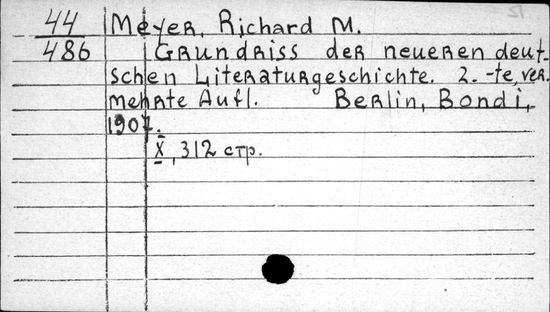 44 Meyer, Richard M.
486 Grundriss der neueren deut-
schen Literaturgeschichte. 2.-te, ver.
mehrte Aufl. Berlin, Bondi,
1907.
X, 312 стр.